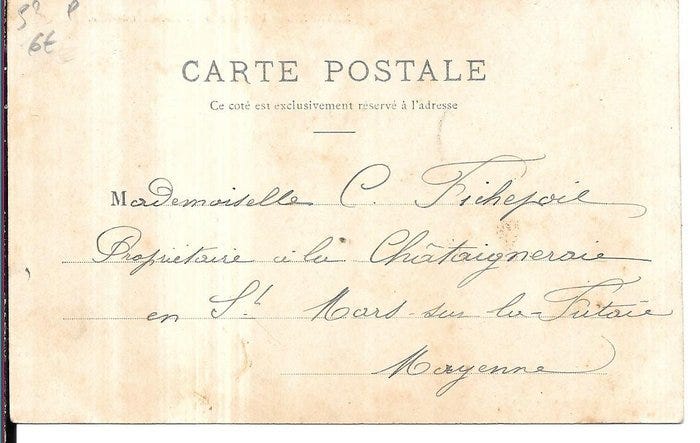 6t
CARTE POSTALE
Ce coté est exclusivement réservé à l'adresse
Mademoiselle C. Fichepoil
Propriétaire à la Châtaigneraie
en St Mars-sur-la-Futaie
Mayenne